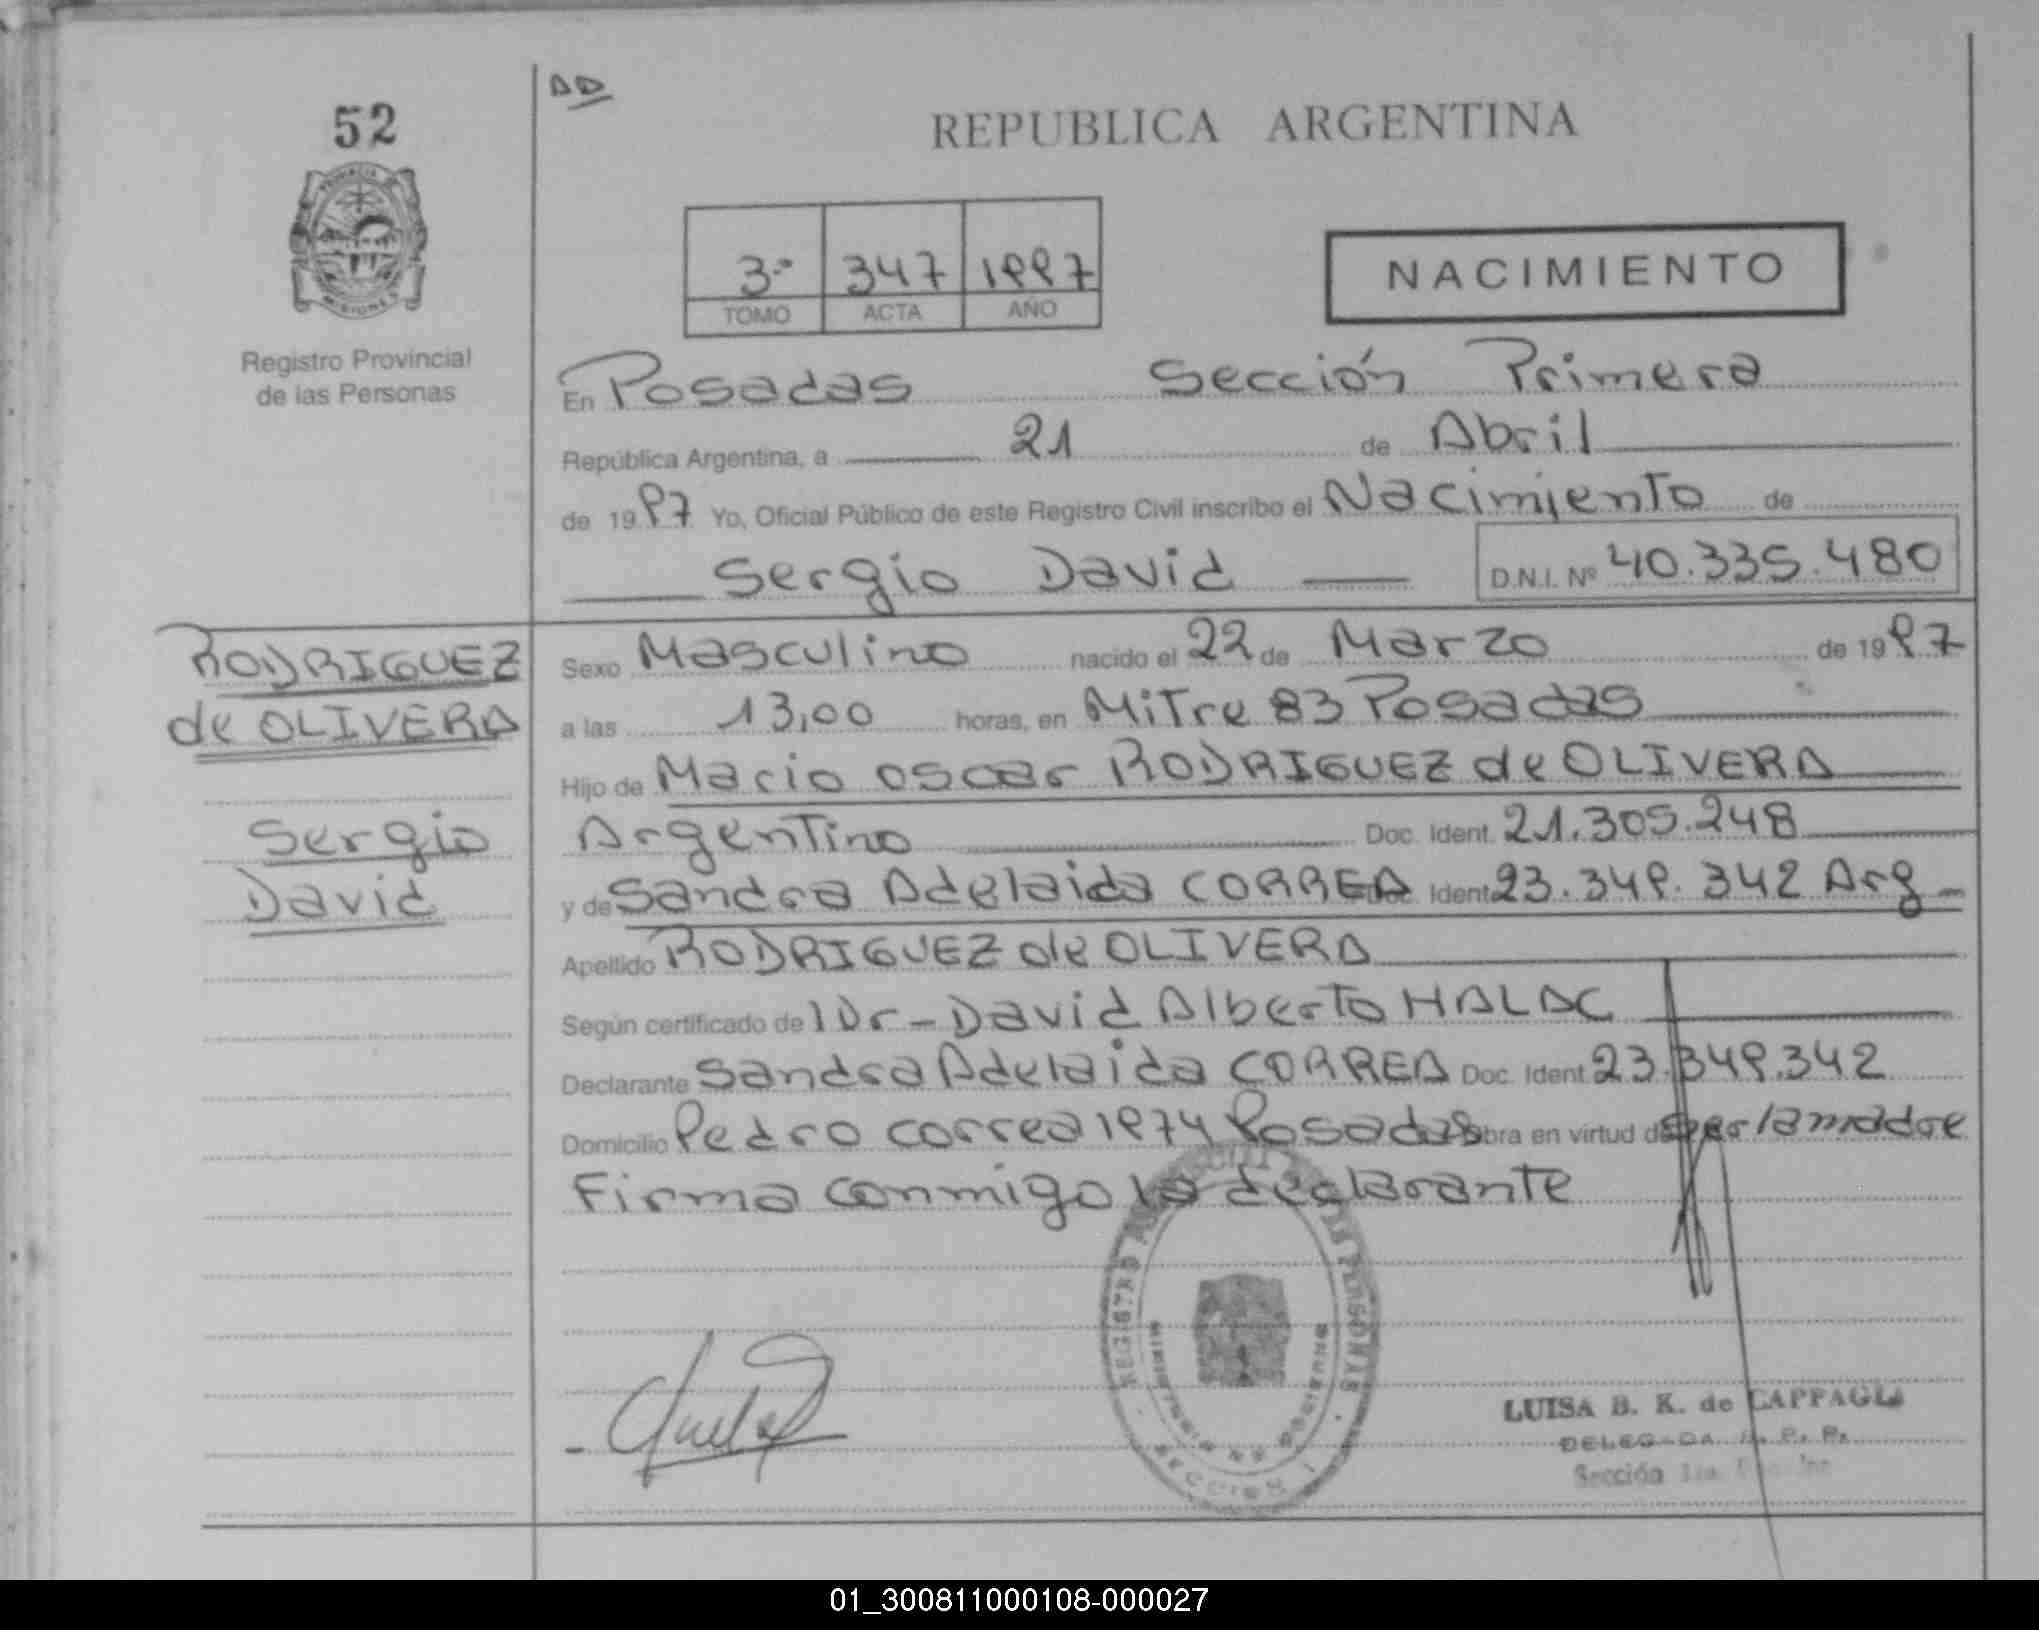 52
REPUBLICA ARGENTINA
3º 347 1997
TOMO ACTA AÑO
NACIMIENTO
Registro Provincial
de las Personas
En Posadas Sección Primera
República Argentina, a 21 de Abril
de 1997 Yo, Oficial Público de este Registro Civil inscribo el Nacimiento de
Sergio David D.N.I. Nº 40.335.480
RODRIGUEZ
de OLIVERA
Sergio
David
Sexo Masculino nacido el 22 de Marzo de 1997
a las 13,00 horas, en Mitre 83 Posadas
Hijo de Mario Oscar RODRIGUEZ de OLIVERA
Argentino Doc. Ident. 21.305.248
y de Sandra Adelaida CORREA Doc. Ident. 23.349.342 Arg
Apellido RODRIGUEZ de OLIVERA
Según certificado de l Dr- David Alberto HALAC
Declarante Sandra Adelaida CORREA Doc. Ident. 23.349.342
Domicilio Pedro Correa 1974 Posadas obra en virtud de ser la madre
Firma conmigo la declarante
REGISTRO DE PERSONAS
SECCION 1
LUISA B. K. de CAPPAGLI
DELEGADA R. P. P.
Sección 1ra.
01_300811000108-000027